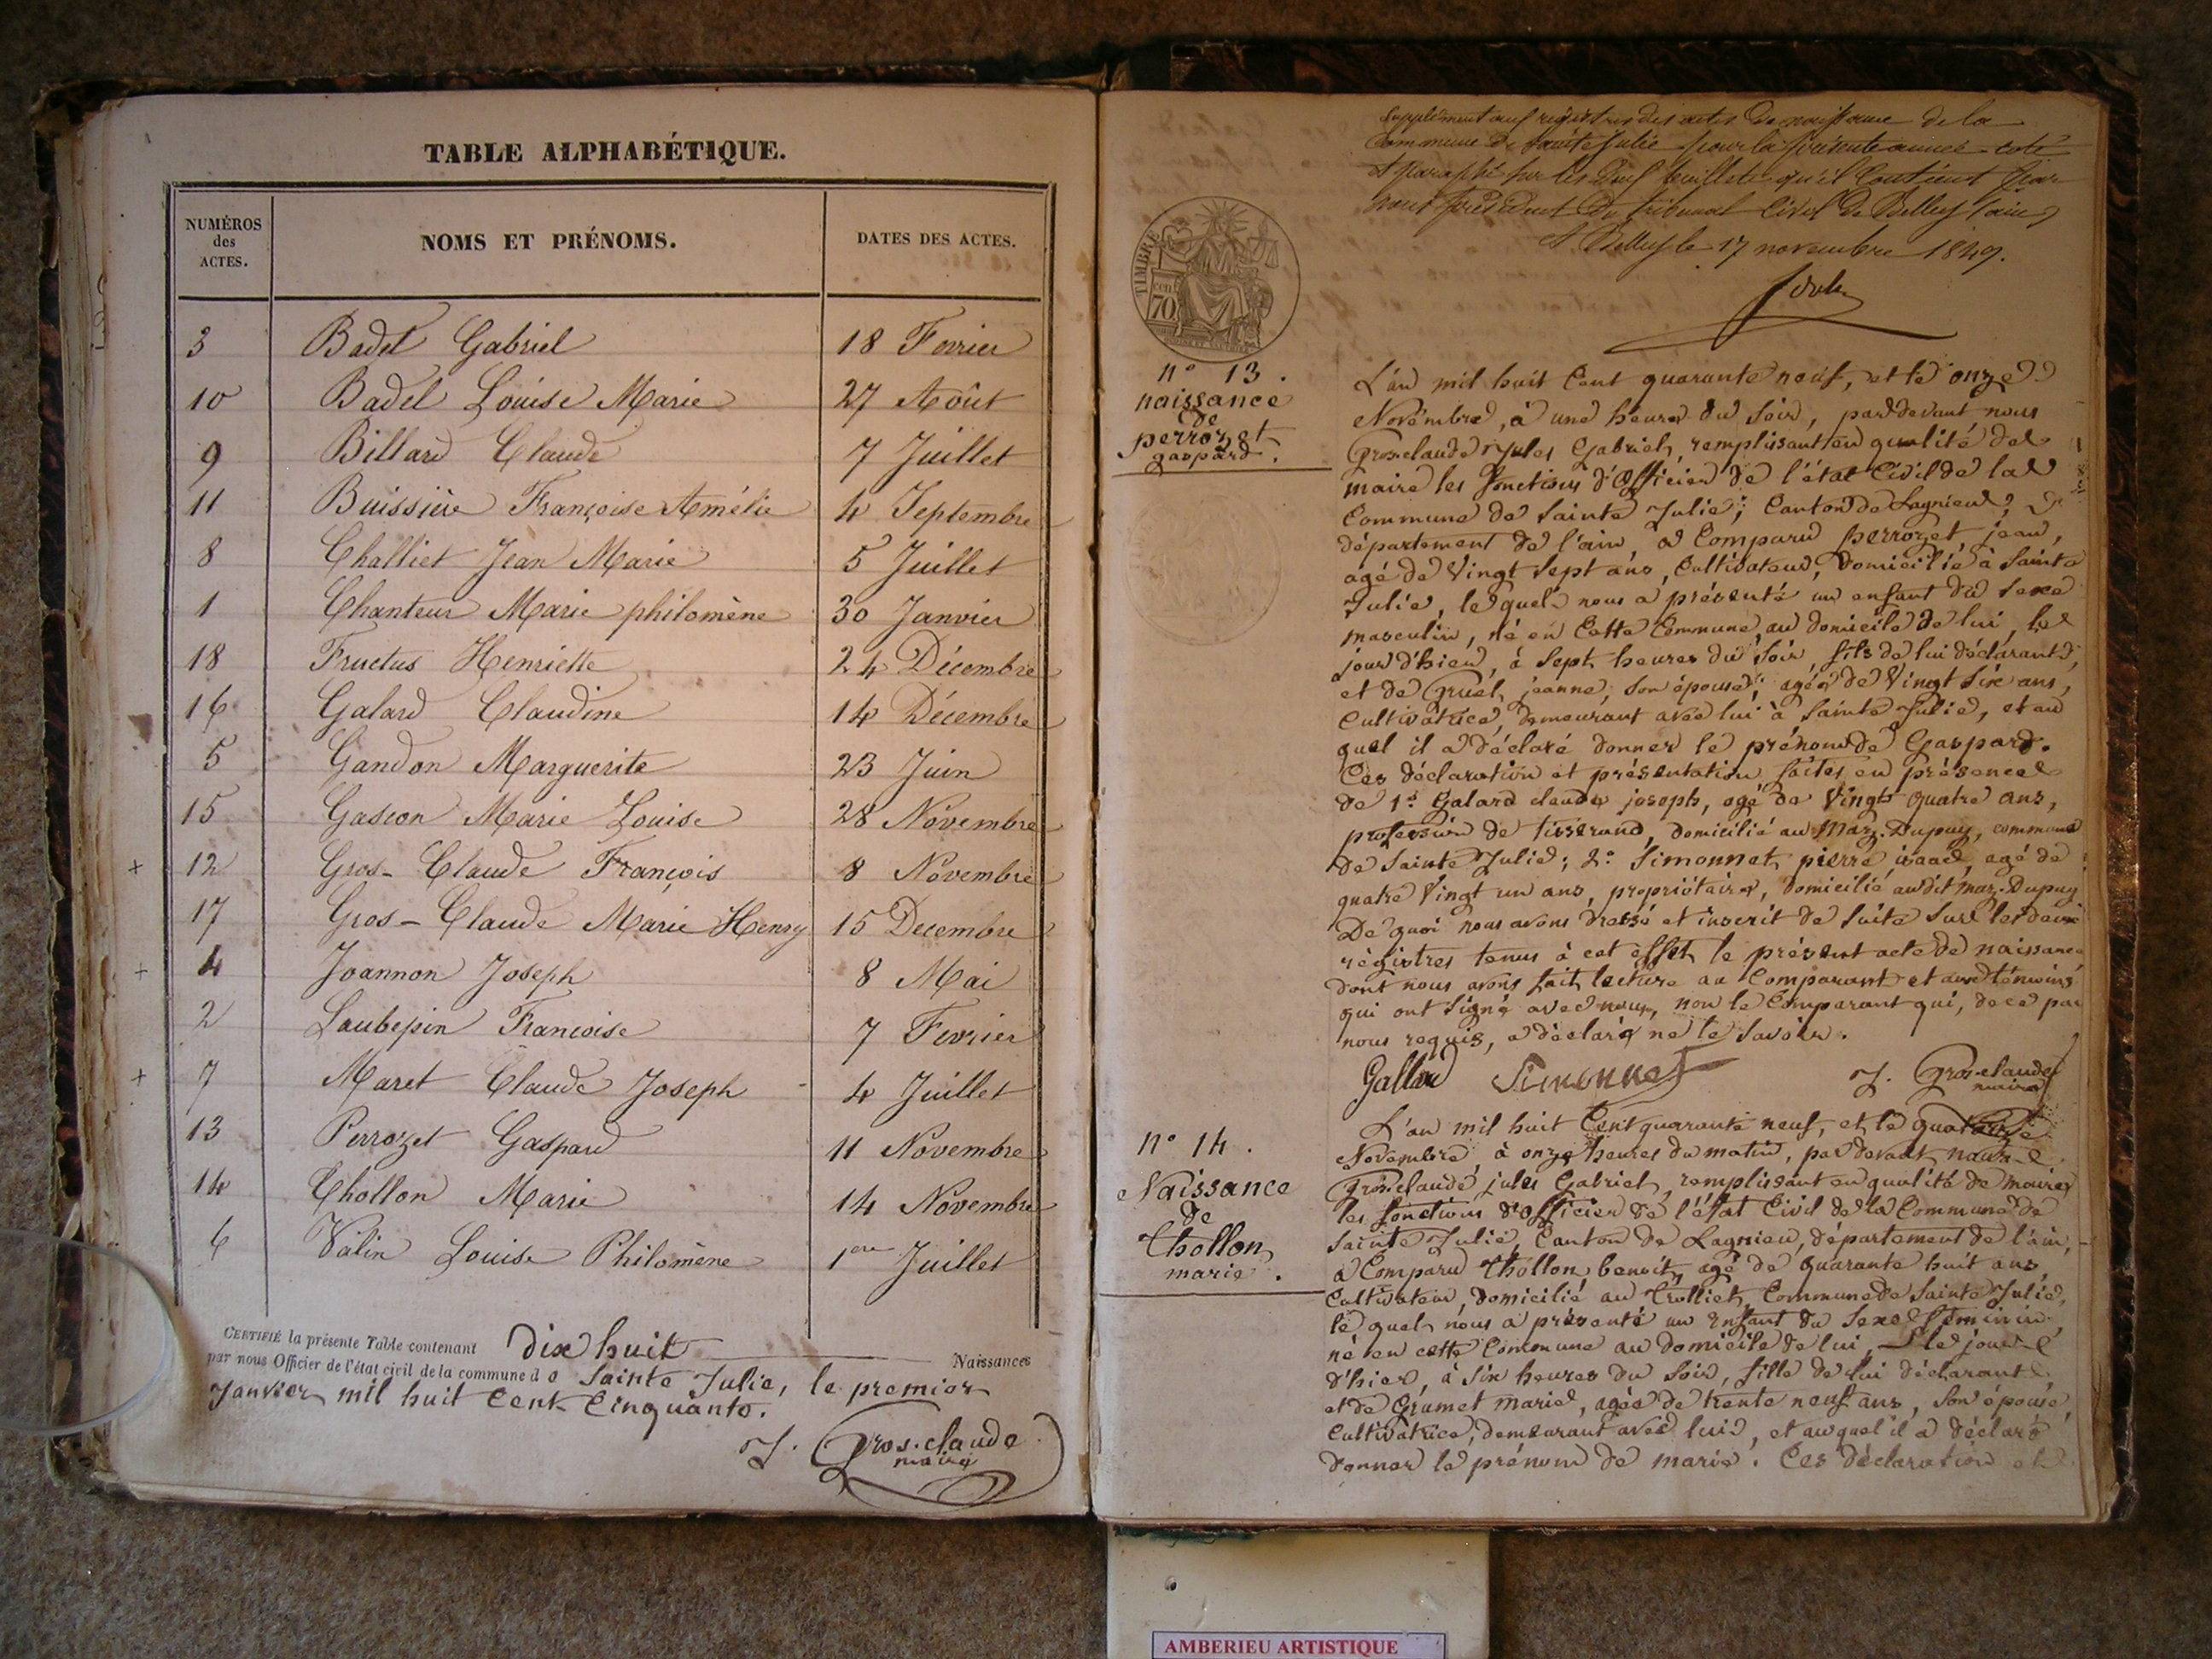 TABLE ALPHABÉTIQUE.
NUMÉROS
des
ACTES.
NOMS ET PRÉNOMS.
DATES DES ACTES.
3 Badel Gabriel 18 Fevrier
10 Badel Louise Marie 27 Août
9 Billard Claude 7 Juillet
11 Buissière Françoise Amélie 4 Septembre
8 Challiet Jean Marie 5 Juillet
1 Chanteur Marie philomène 30 Janvier
18 Fructus Henriette 24 Décembre
16 Galard Claudine 14 Décembre
5 Gandon Marguerite 23 Juin
15 Gascon Marie Louise 28 Novembre
+ 12 Gros-Claude François 8 Novembre
17 Gros-Claude Marie Henry 15 Decembre
+ 4 Joannon Joseph 8 Mai
2 Laubepin Francoise 7 Fevrier
+ 7 Maret Claude Joseph 4 Juillet
13 Perrozet Gaspard 11 Novembre
14 Chollon Marie 14 Novembre
6 Valin Louise Philomène 1er Juillet
CERTIFIÉ la présente Table contenant Dix huit Naissances
par nous Officier de l'état civil de la commune de Sainte Julie, le premier
Janvier mil huit Cent Cinquante.
J. Gros.claude
maire
Supplément aux registres des actes de naissance de la
Commune de Sainte Julie pour la présente année coté
et paraphé sur les deux feuillets qu'il Contient par
nous président du tribunal Civil de Belley (ain)
A Belley le 17 novembre 1849.
TIMBRE
cen
70
n° 13.
naissance
de
perrozet
gaspard.
L'an mil huit Cent quarante neuf, et le onze
Novembre, à une heure du Soir, pardevant nous
Grosclaude Jules Gabriel, remplissant en qualité de
maire les fonctions d'Officier de l'état Civil de la
Commune de Sainte Julie, Canton de Lagnieu,
département de l'ain, a Comparu perrozet, jean,
agé de Vingt Sept ans, Cultivateur, Domicilié à Sainte
Julie, le quel nous a présenté un enfant du Sexe
masculin, né en Cette Commune, au domicile de lui, le
jour d'hier, à Sept heures du Soir, fils de lui déclarant,
et de Gruel, jeanne, Son épouse, agée de Vingt Six ans,
Cultivatrice, demeurant avec lui à Sainte Julie, et au
quel il a déclaré donner le prénom de Gaspard.
Ces déclaration et présentation faites en présence
de 1° Galard claude joseph, agé de Vingt quatre ans,
profession de tisserand, domicilié au Maz-Dupuy, commune
de Sainte Julie; 2° Simonnet, pierre isaac, agé de
quatre Vingt un ans, propriétaire, domicilié audit maz-Dupuy
De quoi nous avons dressé et inscrit de Suite Sur les deux
régistres tenus à cet effet, le présent acte de naissance
dont nous avons fait lecture au Comparant et aux témoins
qui ont Signé avec nous, non le Comparant qui, de ce par
nous requis, a déclaré ne le Savoir.
Gallard Simonnet J. Grosclaude
maire
n° 14.
Naissance
de
Chollon
marie.
L'an mil huit Cent quarante neuf, et le quatorze
Novembre, à onze heures du matin, par devant nous
Grosclaude jules Gabriel, remplissant en qualité de maire
les fonctions d'Officier de l'état Civil de la Commune de
Sainte Julie, Canton de Lagnieu, département de l'ain,
a Comparu Chollon, benoit, agé de quarante huit ans,
Cultivateur, domicilié au Trolliet, Commune de Sainte Julie,
le quel nous a présenté un Enfant du Sexe féminin,
né en cette Commune au domicile de lui, le jour
d'hier, à Six heures du Soir, fille de lui déclarant,
et de Grumet marie, agée de trente neuf ans, Son épouse,
Cultivatrice, demeurant avec lui, et au quel il a déclaré
donner le prénom de marie. Ces déclaration et
AMBERIEU ARTISTIQUE